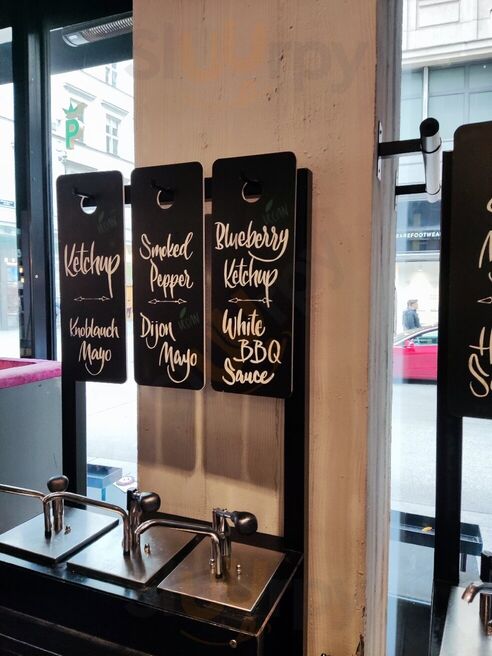 Slurrpy
P
VEGAN
Ketchup
Knoblauch
Mayo
Smoked
Pepper
VEGAN
Dijon
Mayo
VEGAN
Blueberry
Ketchup
White
BBQ
Sauce
BAREFOOTWEAR